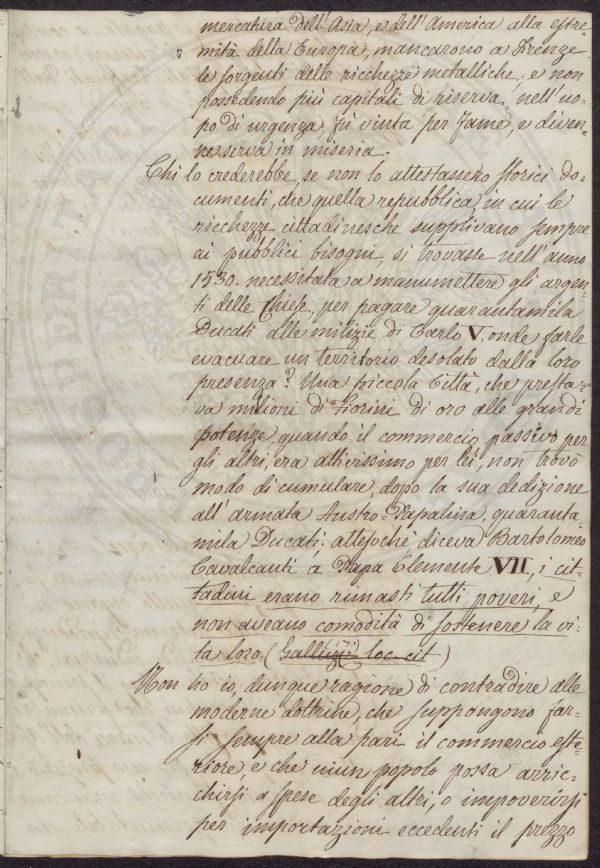 mercatura dell'Asia, e dell'America alla estre=
mità della Europa, mancarono a Firenze
le sorgenti delle ricchezze metalliche; e non
possedendo più capitali di riserva, nell'uo=
po di urgenza, fù vinta per fame, e diven=
ne serva in miseria.
Chi lo crederebbe, se non lo attestassero storici do=
cumenti, che quella repubblica, in cui le
ricchezze cittadinesche supplivano sempre
ai pubblici bisogni, si trovasse nell'anno
1530. necessitata a manumettere gli argen=
ti delle Chiese, per pagare quarantamila
Ducati alle milizie di Carlo V. onde farle
evacuare un territorio desolato dalla loro
presenza? Una piccola Città, che presta=
va milioni di Fiorini di oro alle grandi
potenze, quando il commercio passivo per
gli altri, era attivissimo per lei, non trovò
modo di cumulare, dopo la sua dedizione
all'armata Austro-Papalina, quaranta=
mila Ducati; attesochè, diceva Bartolomeo
Cavalcanti a Papa Clemente VII, i cit=
tadini erano rimasti tutti poveri, e
non aveano comodità di sostenere la vi=
ta loro. (Galluzzi loc. cit)
Non ho io, dunque ragione di contradire alle
moderne dottrine, che suppongono far=
si sempre alla pari il commercio este=
riore, e che niun popolo possa arric=
chirsi a spese degli altri, o impoverirsi
per importazioni eccedenti il prezzo